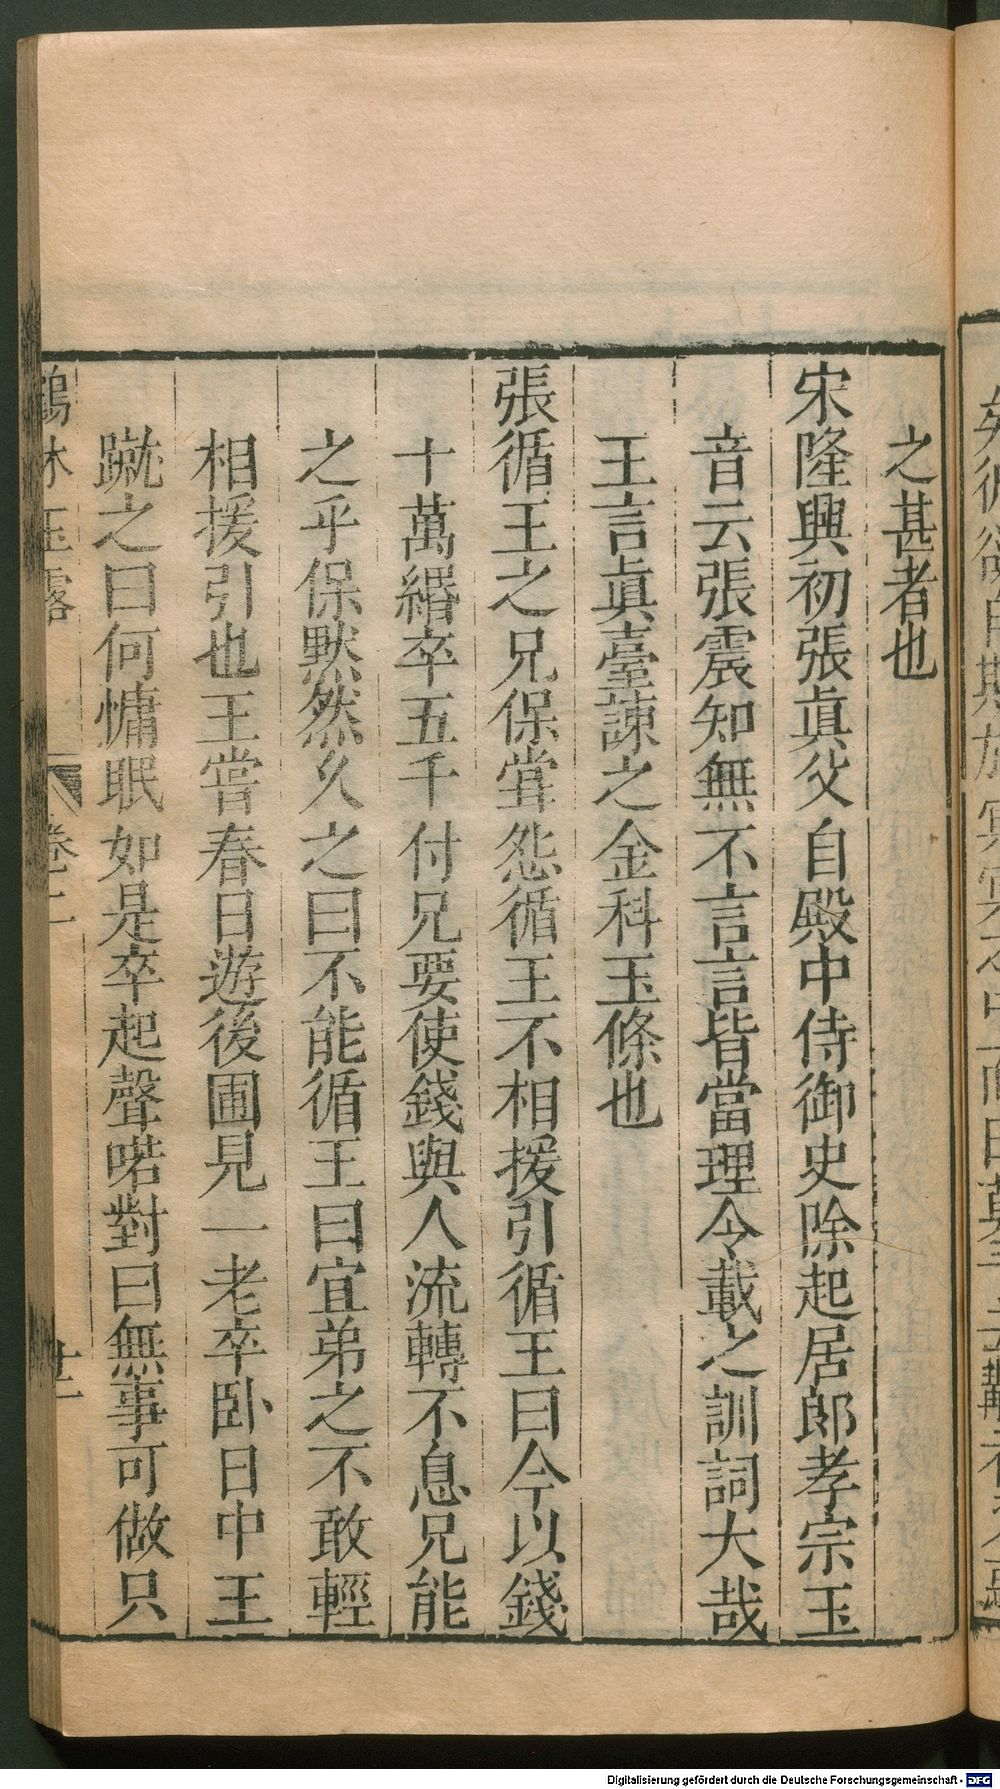 之甚者也
宋隆興初張眞父自殿中侍御史除起居郎孝宗玉
音云張震知無不言言皆當理令載之訓詞大哉
王言眞臺諫之金科玉條也
張循王之兄保甞怨循王不相援引循王曰今以錢
十萬緡卒五千付兄要使錢與人流轉不息兄能
之乎保默然久之曰不能循王曰宜弟之不敢輕
相援引也王嘗春日遊後圃見一老卒卧日中王
蹴之曰何慵眠如是卒起聲喏對曰無事可做只
鶴林玉露 卷二 廿二
Digitalisierung gefördert durch die Deutsche Forschungsgemeinschaft - DFG